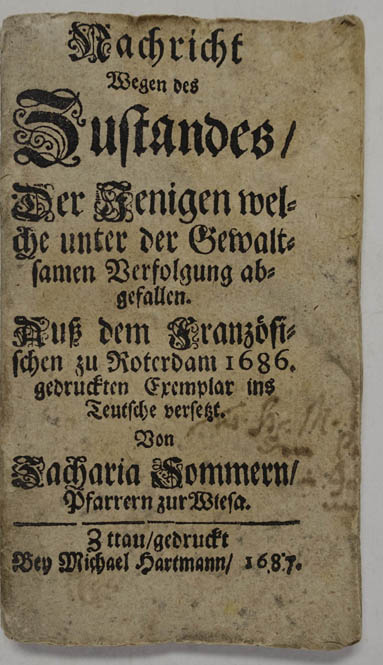 Nachricht
Wegen des
Zustandes/
Der Jenigen wel⸗
che unter der Gewalt⸗
samen Verfolgung ab⸗
gefallen.
Auß dem Französi⸗
schen zu Roterdam 1686.
gedruckten Exemplar ins
Teutsche versetzt.
Von
Zacharia Sommern/
Pfarrern zur Wiesa.
Zittau/gedruckt
Bey Michael Hartmann/ 1687.